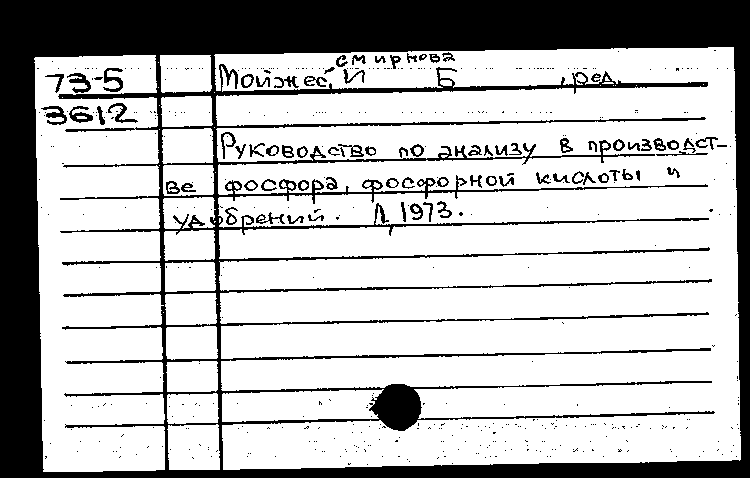 смирнова
73-5 Мойжес, И Б , ред.
3612
Руководство по анализу в производст-
ве фосфора, фосфорной кислоты и
удобрений. Л, 1973.